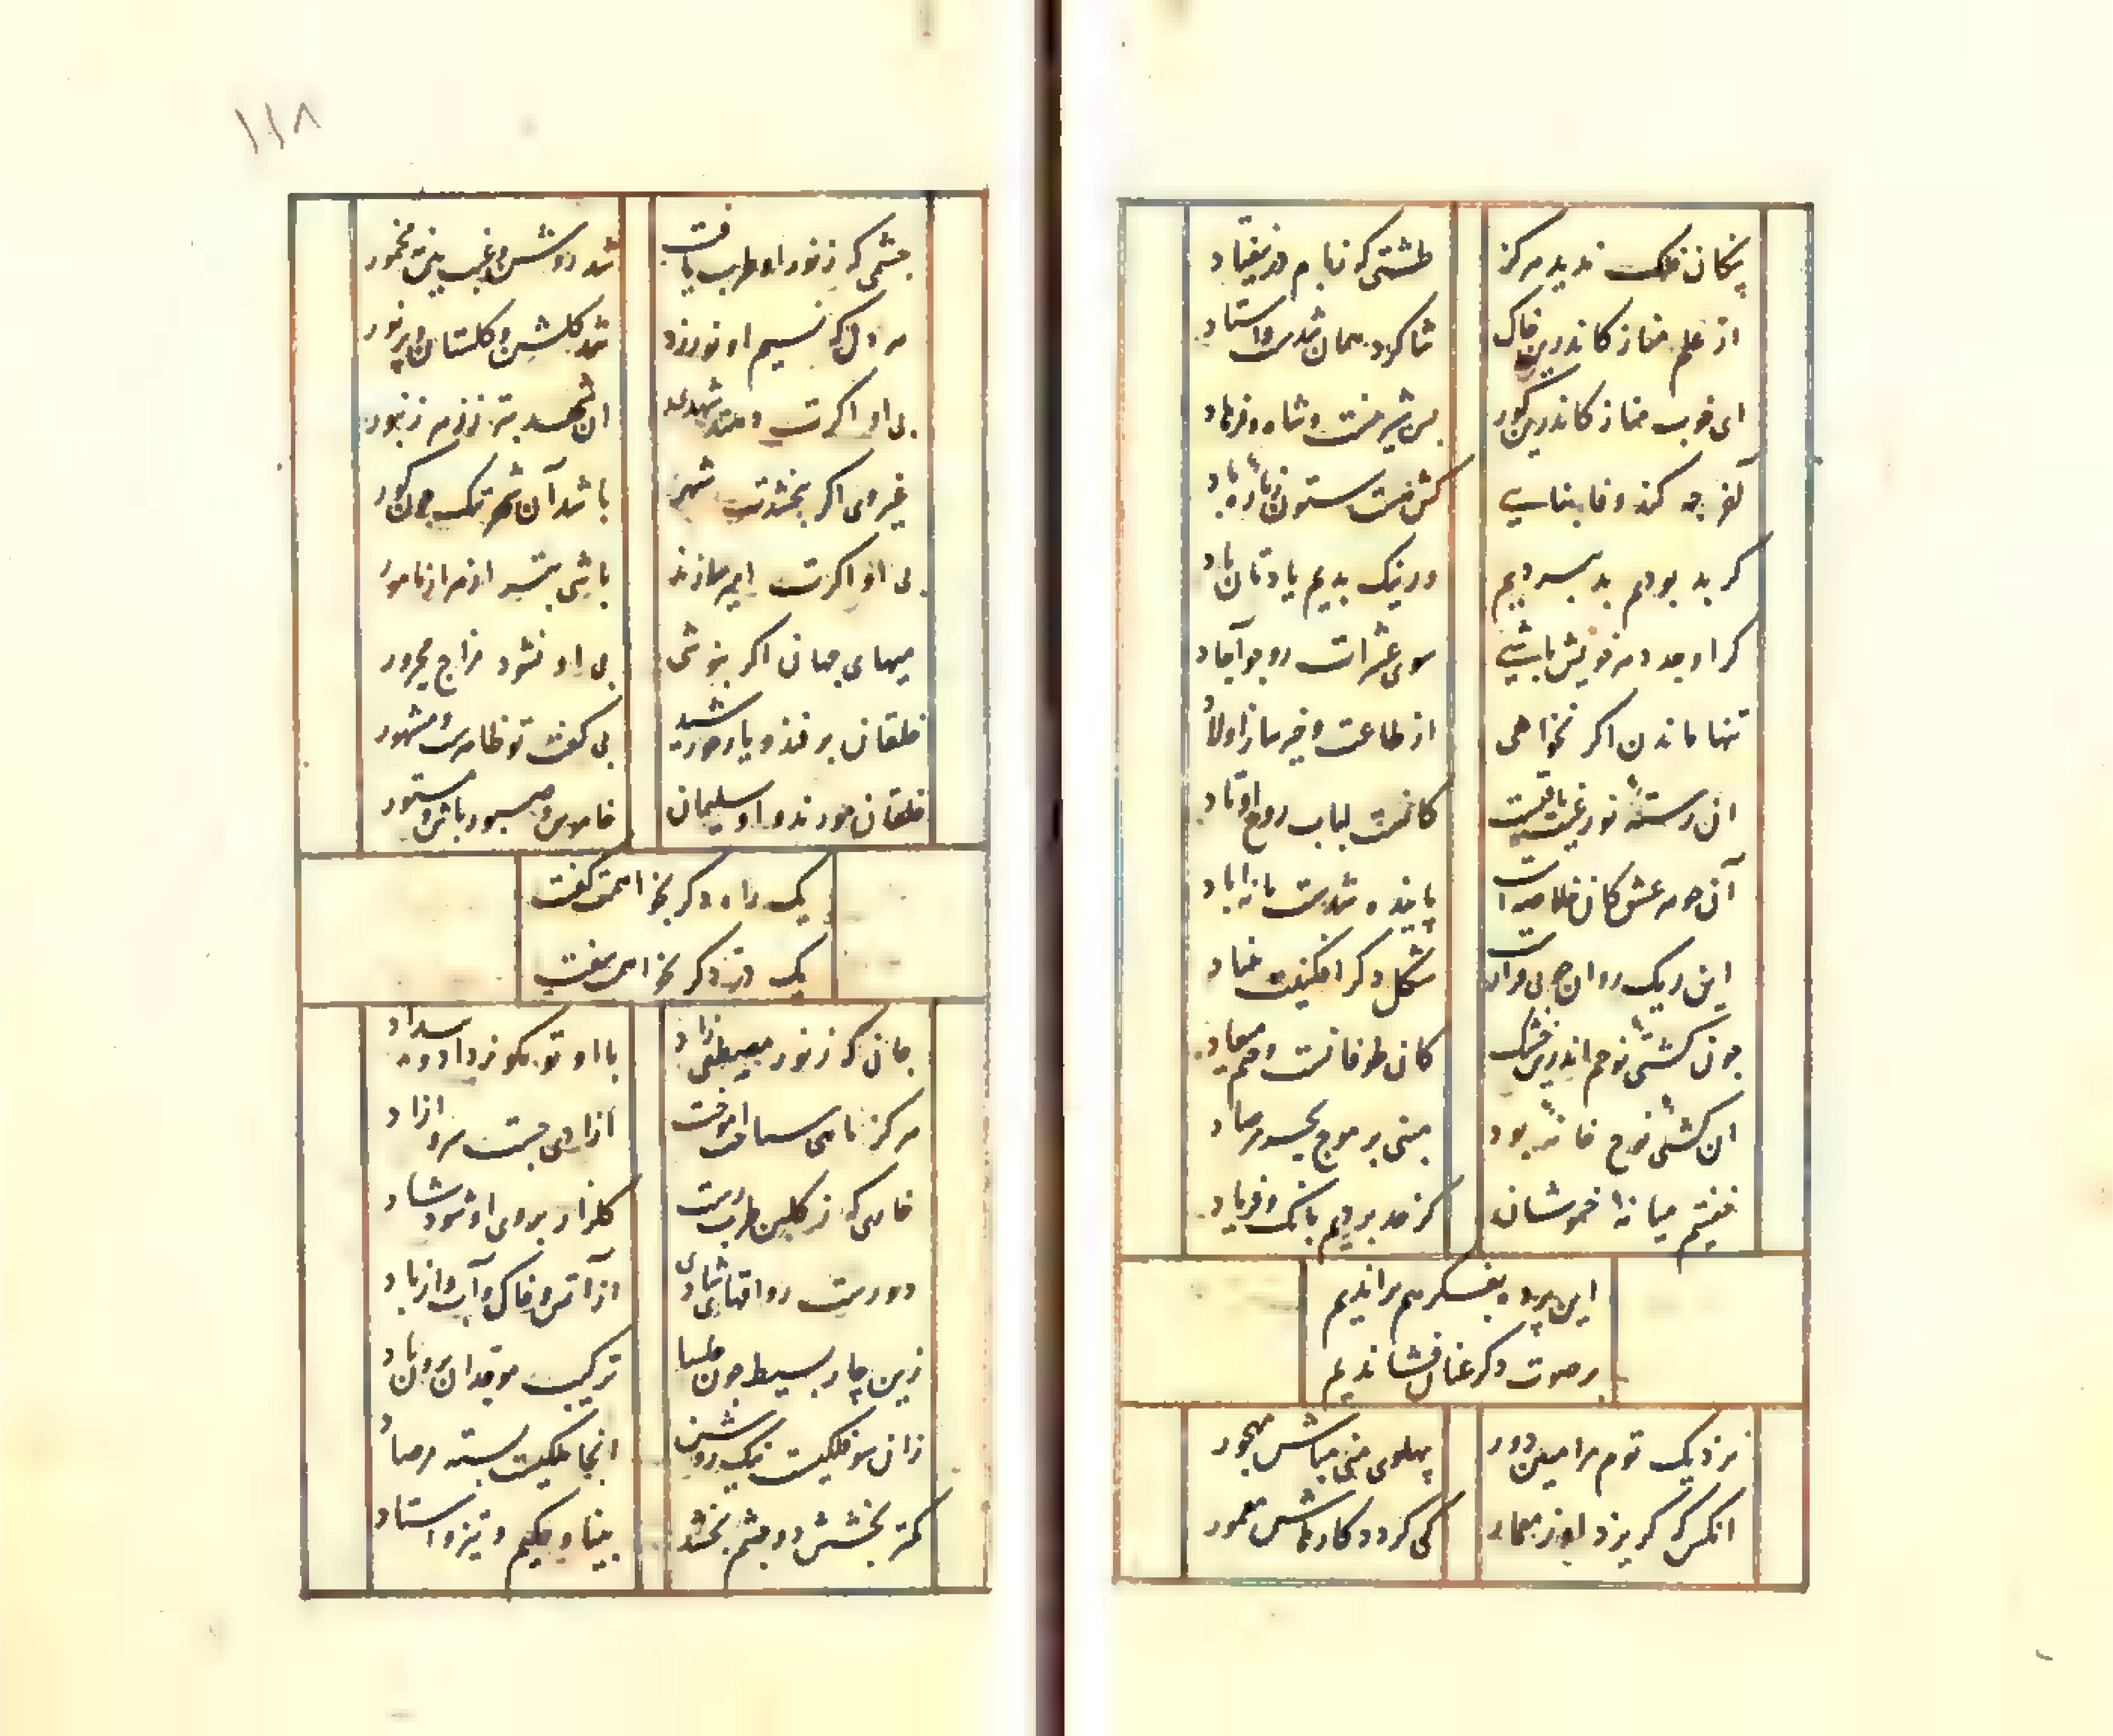 پنکان فلک ندید هرکز
طشتی که زبام در نیفتاد
از علم مناز کاندرین خاک
شاکرد همان شدست واستاد
ای خوب مناز کاندرین کور
بس شیرینست وشاه وفرهاد
آخر چه کند وفا بنایی
کش نیست ستون
کر بد بودیم بد ببردیم
ور نیک بدیم یادتان باد
کر اوحد دهر خویش باشی
سوی عشرات رو چو آحاد
تنها ماندن اکر نخواهی
از طاعت وخیر ساز اولاد
ان رشته نور غیب باقیست
کانست لباب روح اوتاد
آن جوهر عشق کان خلاصه است
پاینده شدست تا به اباد
این ریک روان چو بی قرارست
شکل دکر افکنند بنیاد
چون کشتی نوحم اندرین خشک
کان طوفانست ختم میعاد
ان کشتی نوح خانه بود
بینی بر موج بحر مرصاد
خفتیم میانه خموشان
کز حد بردیم بانک وفریاد
این پرده بفسکرهم براندیم
بر صوت دکر عنان فشاندیم
نزدیک توم مرا مبین دور
پهلوی منی مباش مهجور
انکس که کریزد او ز معمار
کی کردد کارهاش معمور
۱۱۸
چشمی که ز نور او طرب یافت
شد روشن وغیب بین ومخمور
هر دل که نسیم او بدو زد
شد کلشن وکلستان پر نور
بی او اکرت دهند شهدی
ان شهد بتر ز زخم زنبور
غیر وی اکر ببخشدت شهر
باشد آن شهر تنک چون کور
بی او اکرت امیر سازند
باشی بتر از هزار مامور
میهای جهان اکر بنوشی
بی او نشود مزاج محرور
خلقان برفند ویار خورشید
بی کفت تو ظاهرست ومشهور
خلقان مورند واو سلیمان
خاموش وصبور باش ومستور
یک راه دکر بخواهمت کفت
یک در دکر بخواهمی سفت
جان کو ز نور مصطفی زاد
با او تو مکو ز داد وبیداد
هرکز ماهی سباحت اموخت
آزادی جست سرو ازاد
خاری که ز کلبن طرب رست
کلزار بروی او شود شاد
دورست رواقهای شادی
از آتش وخاک وآب واز باد
زین چار بسیط چون چلیپا
ترکیب موحدان برون باد
زان سو فلکیست نیک روشن
انجا ملکیست بسته مرصاد
کمتر بخشش دو چشم بخشد
بینا وحکیم وتیز واستاد